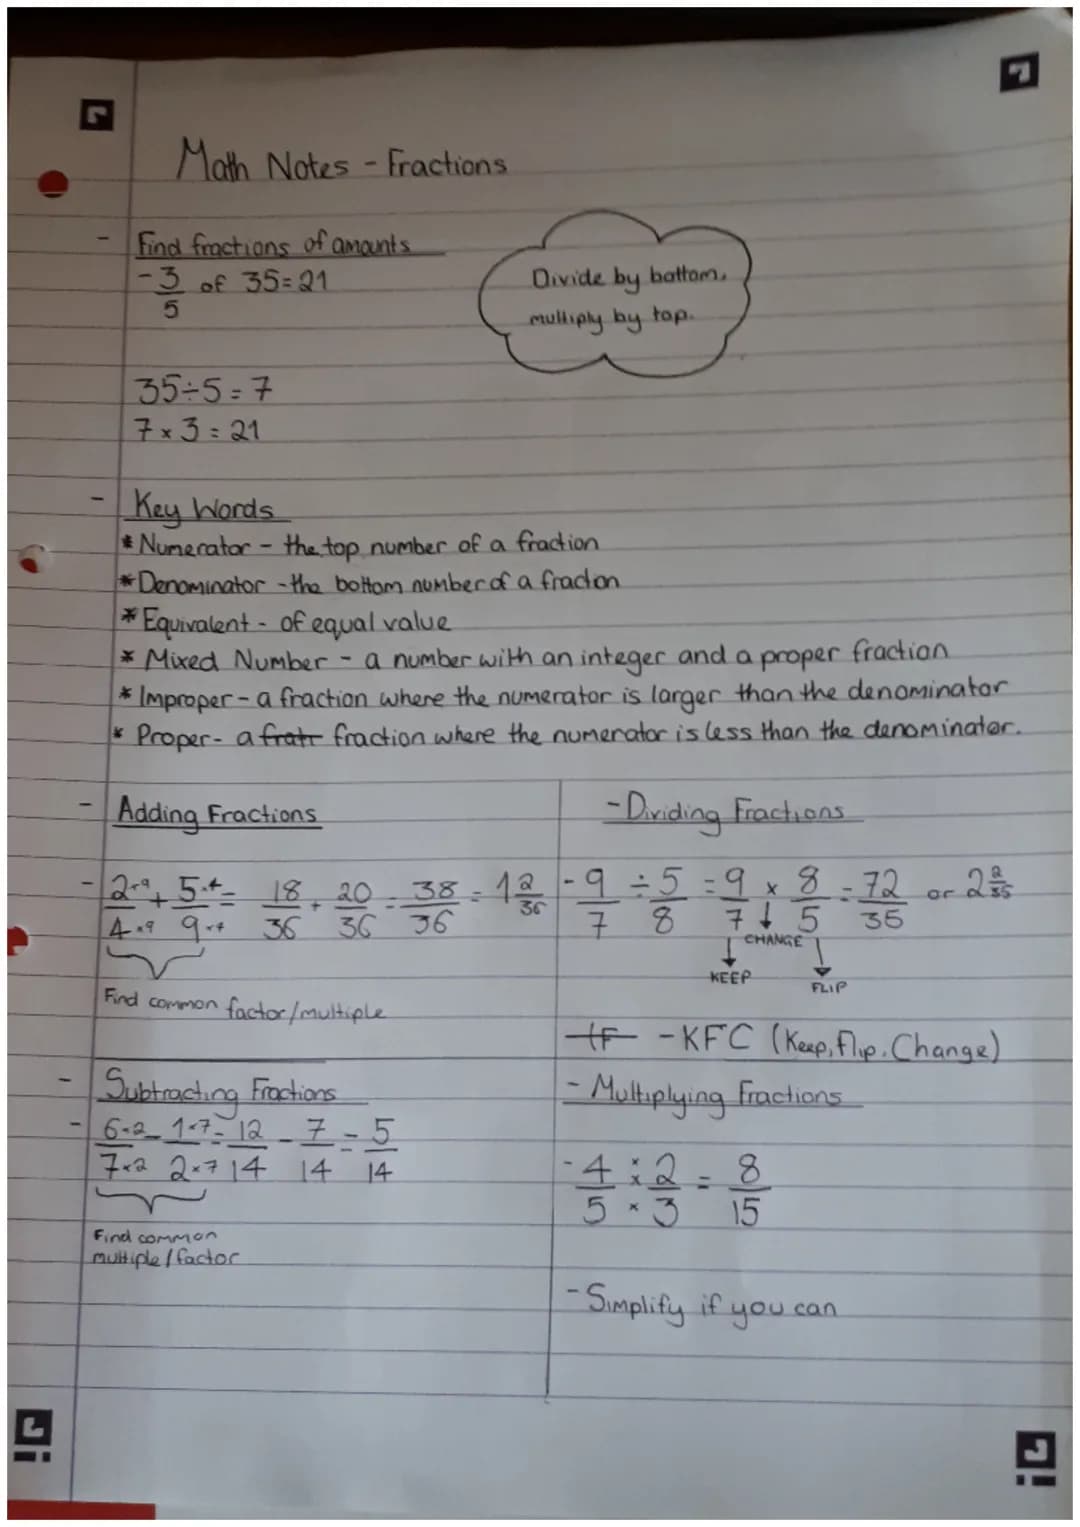 Math Notes - Fractions
- Find fractions of amounts
- 3/5 of 35 = 21
Divide by bottom,
multiply by top.
35 ÷ 5 = 7
7 × 3 = 21
- Key Words
* Numerator - the top number of a fraction
* Denominator - the bottom number of a fracton
* Equivalent - of equal value
* Mixed Number - a number with an integer and a proper fraction
* Improper - a fraction where the numerator is larger than the denominator
* Proper - a fratr fraction where the numerator is less than the denominator.
- Adding Fractions
- 2×9/4×9 + 5×4/9×4 = 18/36 + 20/36 = 38/36 = 1 2/36
Find common factor/multiple
- Subtracting Fractions
- 6×2/7×2 - 1×7/2×7 = 12/14 - 7/14 = 5/14
Find common
multiple/factor
- Dividing Fractions
- 9/7 ÷ 5/8 = 9/7 × 8/5 = 72/35 or 2 2/35
CHANGE
KEEP
FLIP
- KFC (Keep, Flip, Change)
- Multiplying Fractions
- 4/5 × 2/3 = 8/15
- Simplify if you can